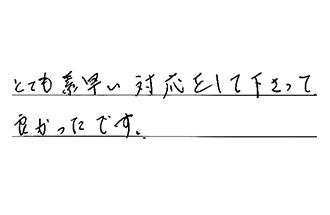 とても素早い対応をして下さって
良かったです。